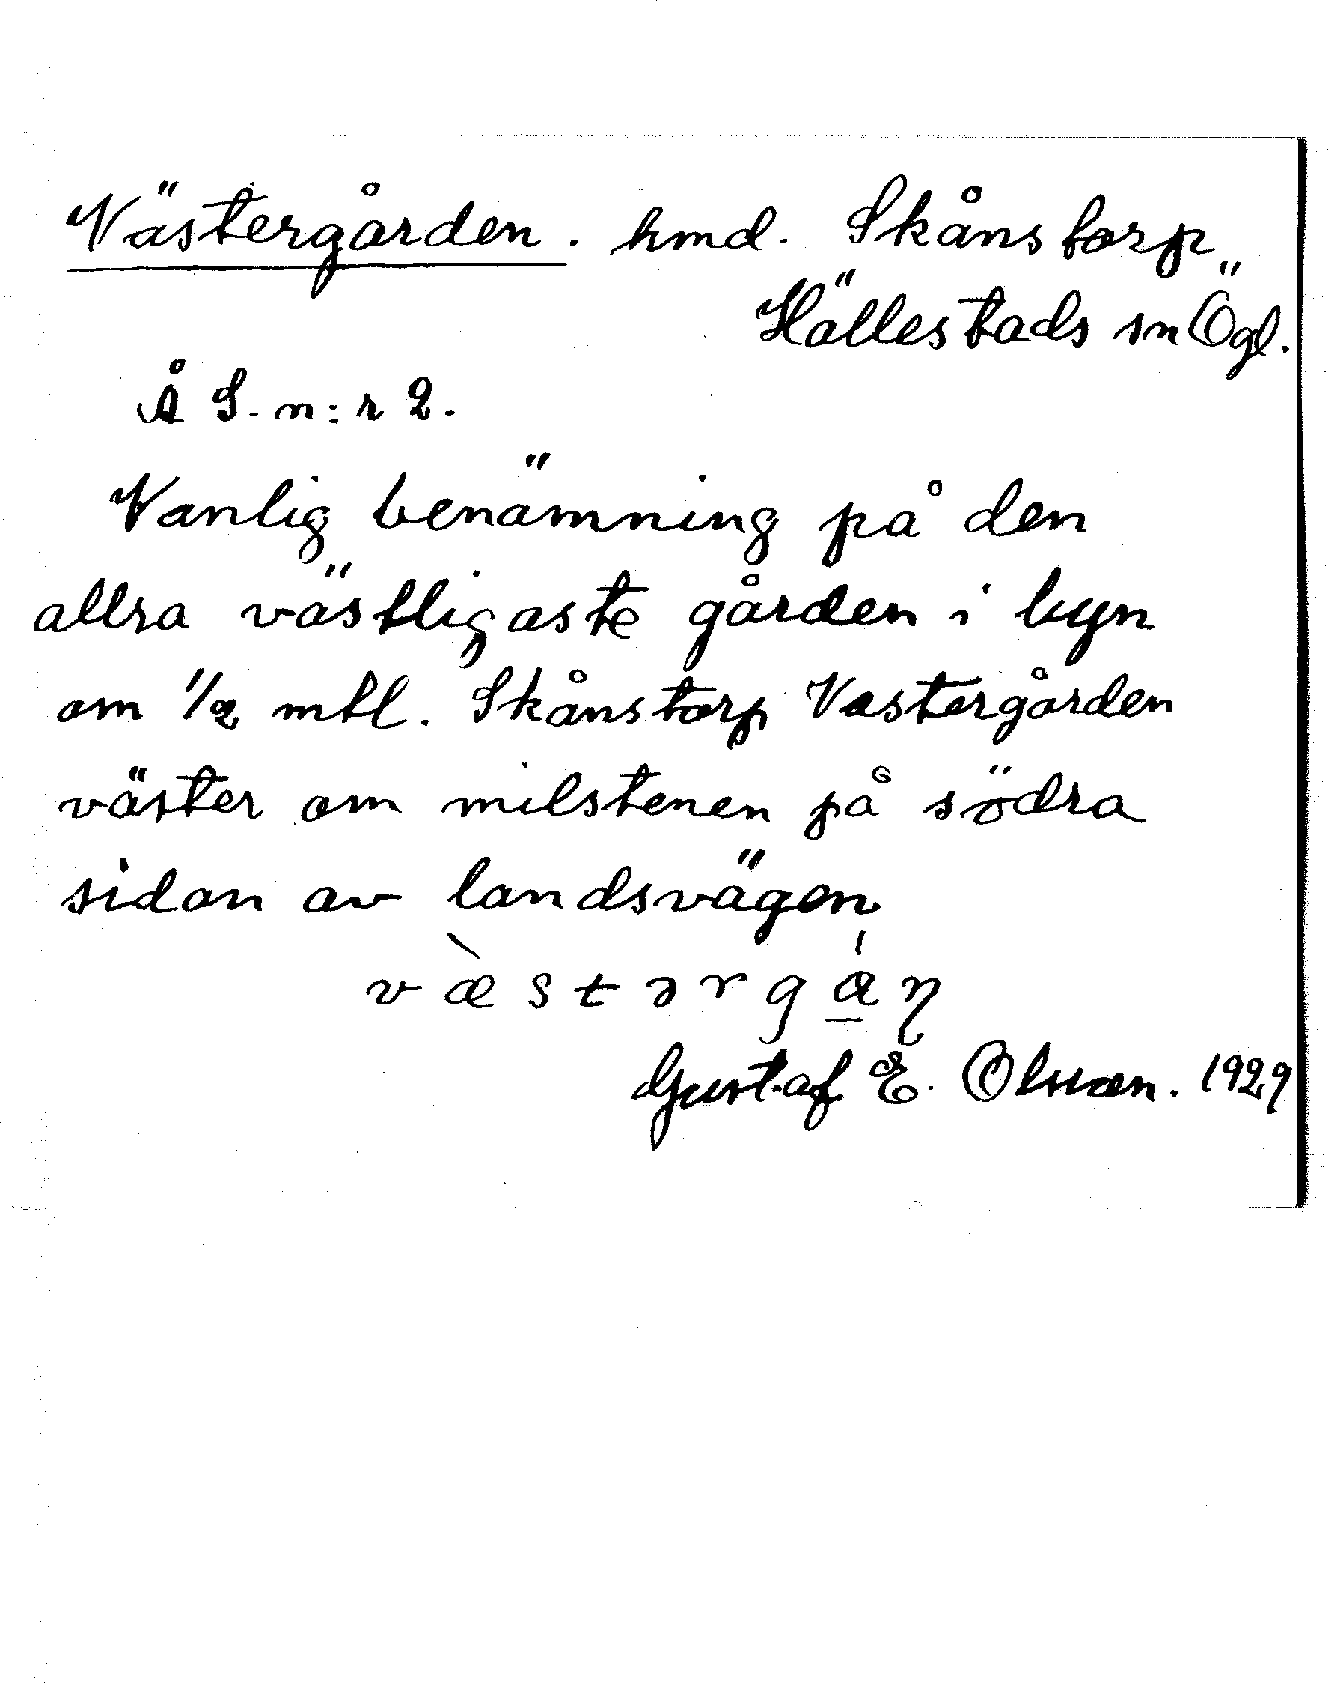 Västergården. hmd. Skånstorp
Hällestads sn Ögl.
Å S. n:r 2.
Vanlig benämning på den
allra västligaste gården i byn
om 1/2 mtl. Skånstorp Västergården
väster om milstenen på södra
sidan av landsvägen
væ̀stərgǻ̲ꞃ
Gustaf E. Olsson. 1929